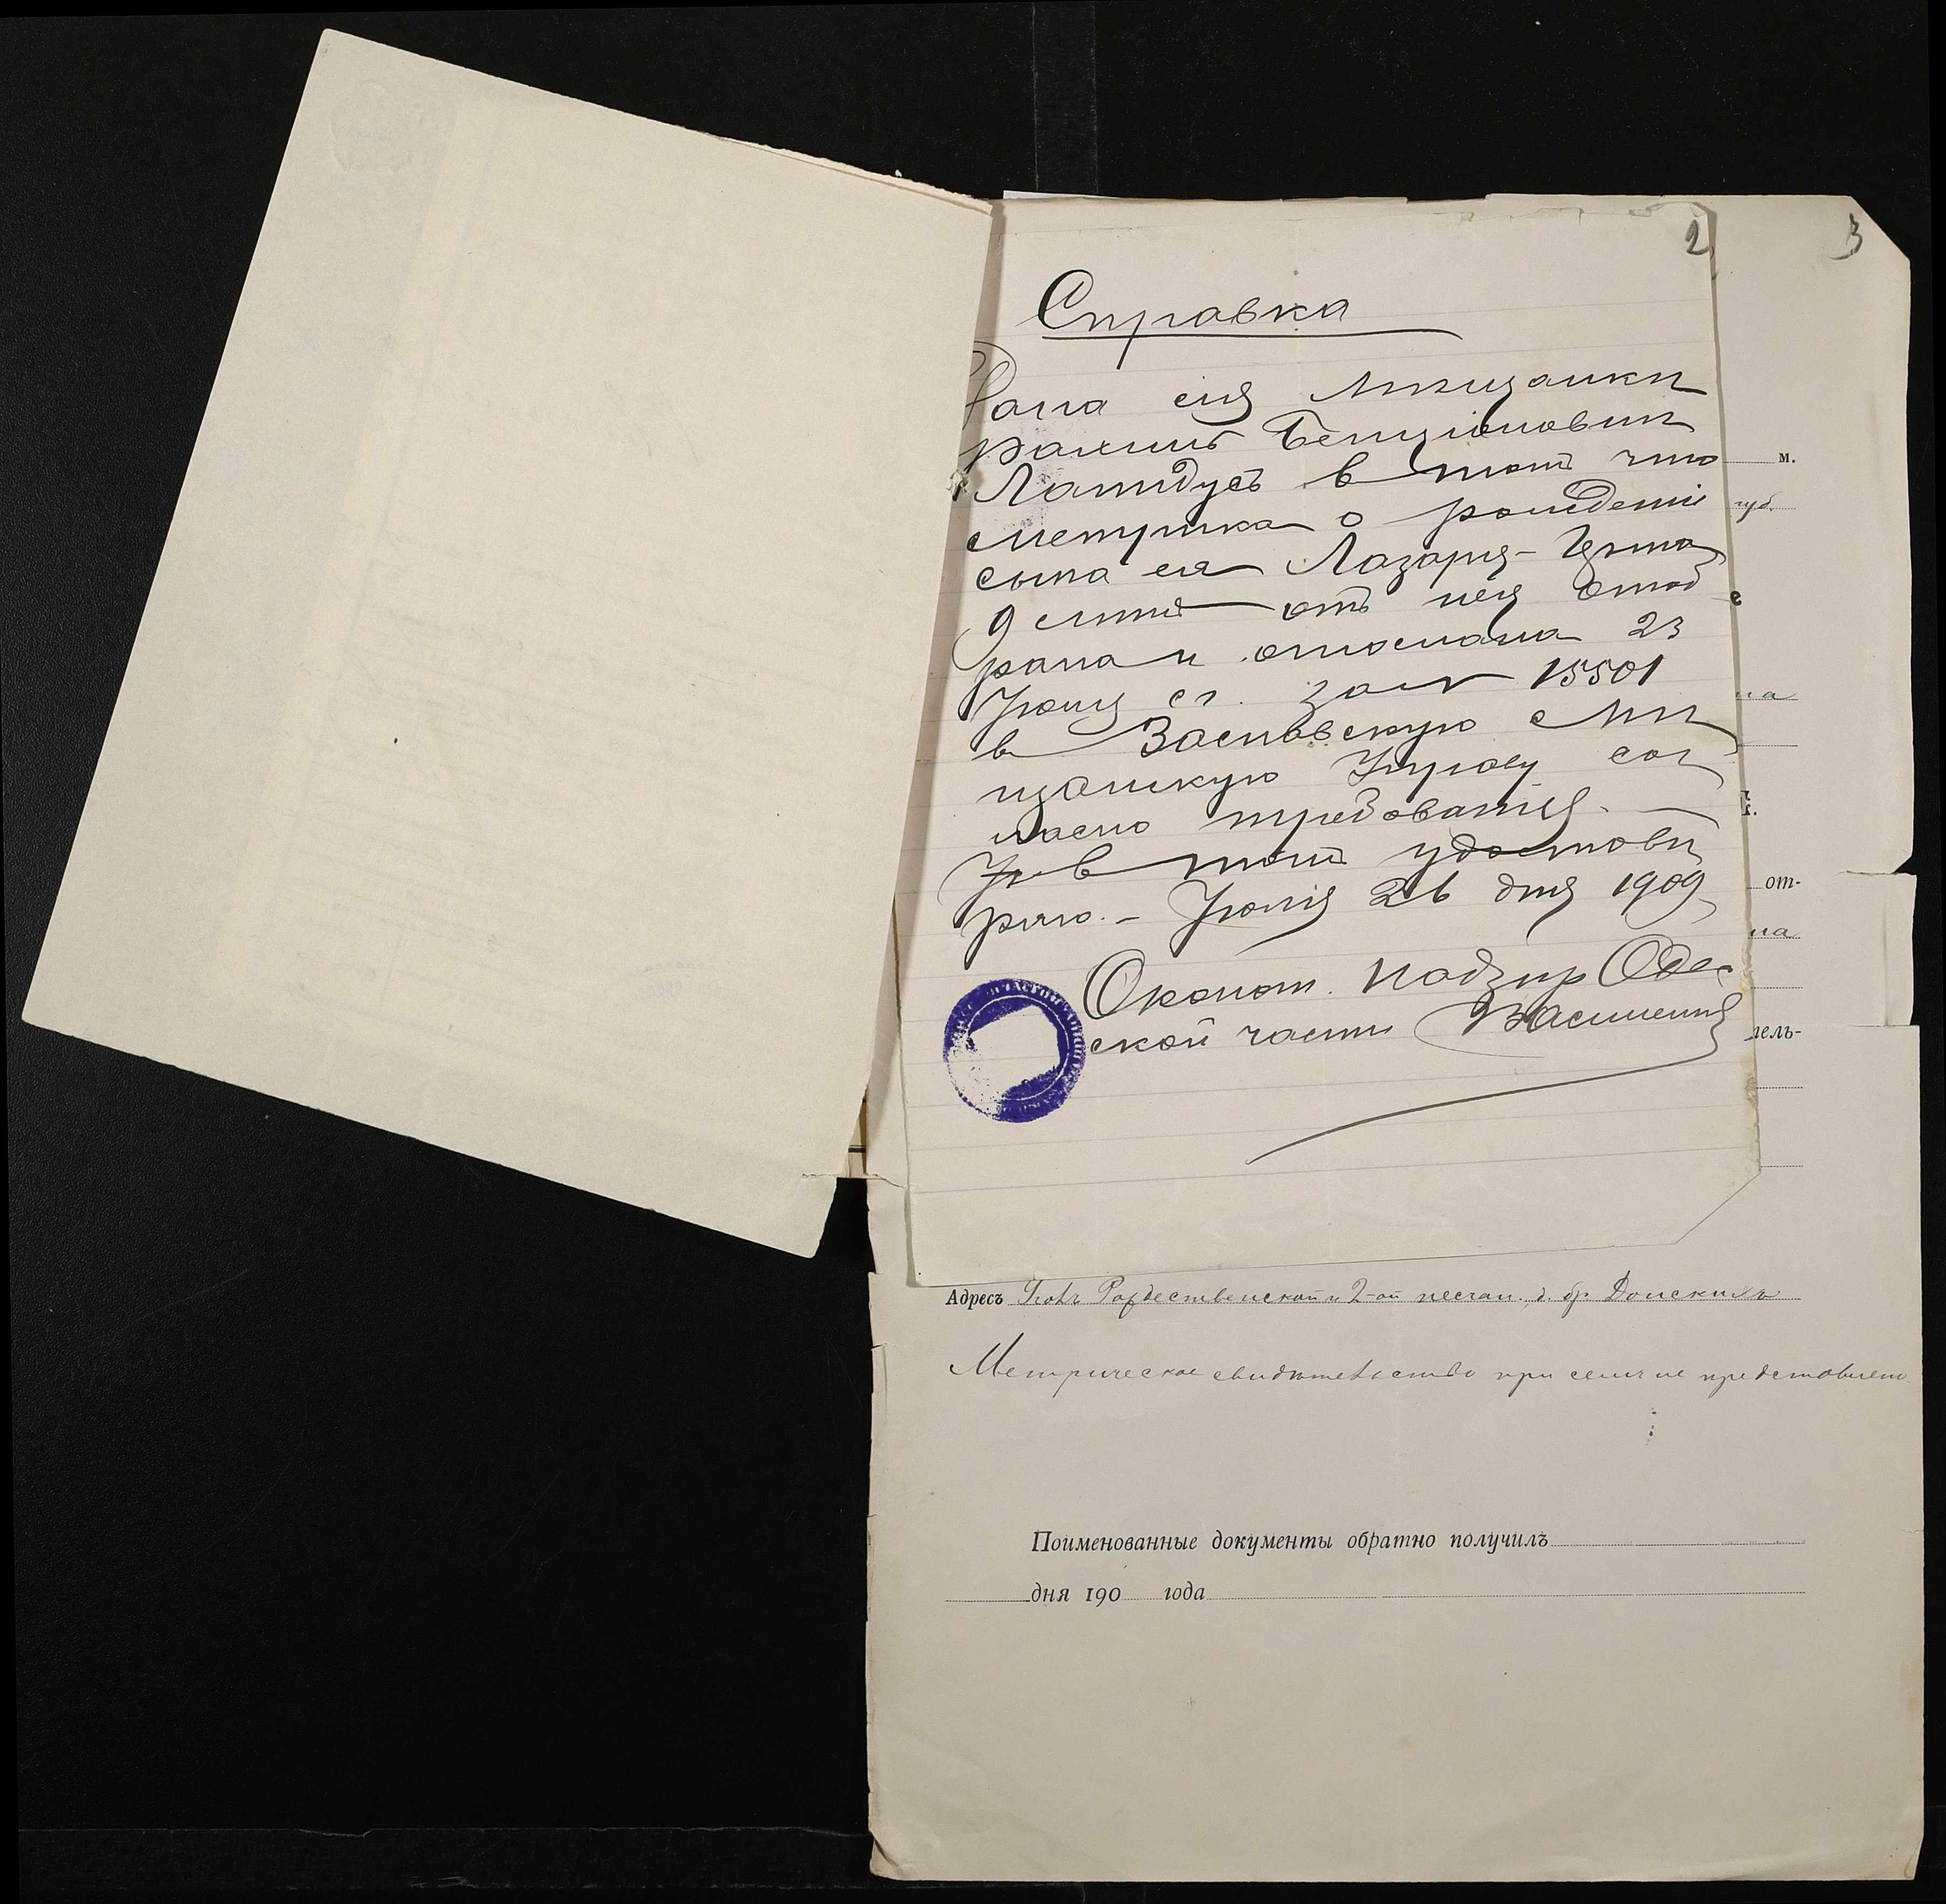 2
3
Справка
Дана сия мещанки
Рахиль Бенціоновны
Лапидусъ в томъ что
метрика о рождении
сына ея Лазаря-
9 летъ отъ нея отоб
рана и отослана 23
Июля сг. за № 15501
в Заславскую Ме
щанскую Управу сог
ласно требования. —
И в томъ удостове
ряю. – Июля 26 дня 1909
Околот. Надзир Одес
ской части
м.
губ.
е
на
от-
на
тель-
Адресъ Рождественской и 2-ой песчан. д. бр. Донскихъ
Метрическое свидѣтельство при семъ не представлено
Поименованные документы обратно получилъ
дня 190 года